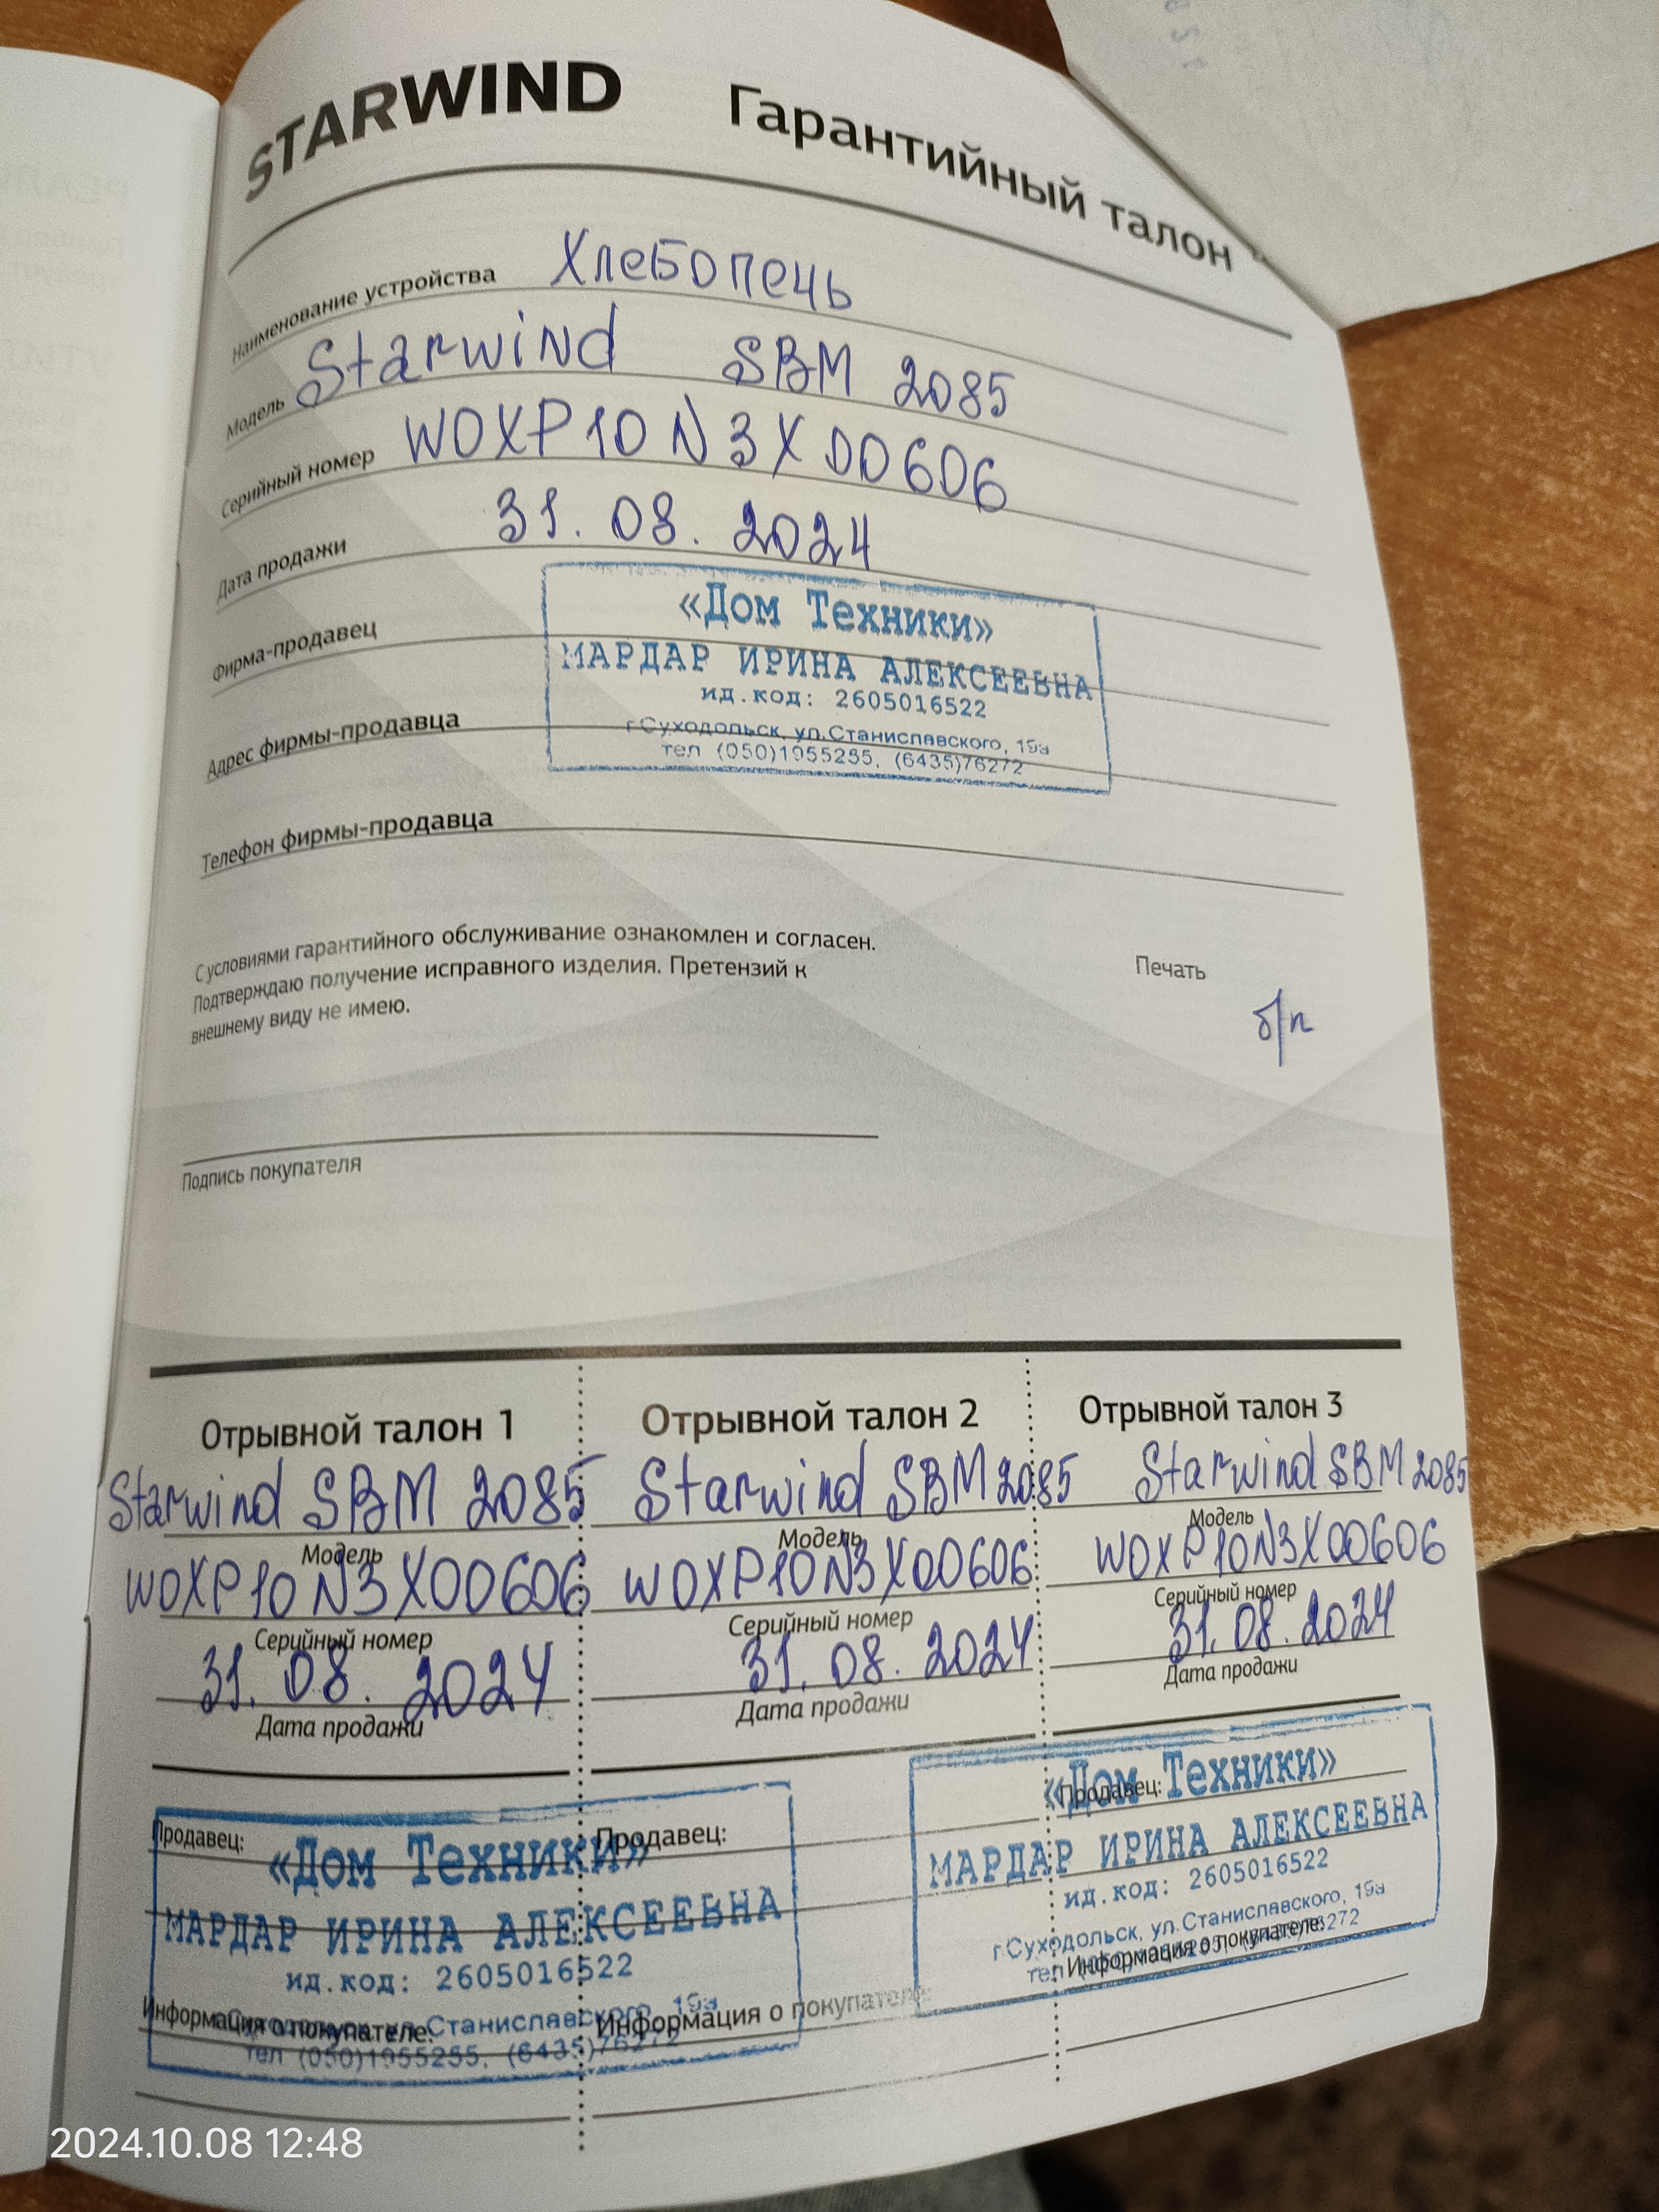 STARWIND Гарантийный талон
Наименование устройства Хлебопечь
Модель Starwind SBM 2085
Серийный номер WOXP10N3X00606
Дата продажи 31.08.2024
Фирма-продавец
«Дом Техники»
МАРДАР ИРИНА АЛЕКСЕЕВНА
ид.код: 2605016522
Адрес фирмы-продавца
г.Суходольск, ул.Станиславского, 19а
тел (050)1955255, (6435)76272
Телефон фирмы-продавца
С условиями гарантийного обслуживание ознакомлен и согласен.
Подтверждаю получение исправного изделия. Претензий к
внешнему виду не имею.
Печать
б/п
Подпись покупателя
Отрывной талон 1
Starwind SBM 2085
Модель
WOXP10N3X00606
Серийный номер
31.08.2024
Дата продажи
Продавец:
«Дом Техники»
МАРДАР ИРИНА АЛЕКСЕЕВНА
ид.код: 2605016522
ул.Станиславского, 19а
тел (050)1955255, (6435)76272
Информация о покупателе:
Отрывной талон 2
Starwind SBM 2085
Модель
WOXP10N3X00606
Серийный номер
31.08.2024
Дата продажи
Продавец:
Информация о покупателе:
Отрывной талон 3
Starwind SBM 2085
Модель
WOXP10N3X00606
Серийный номер
31.08.2024
Дата продажи
Продавец:
«Дом Техники»
МАРДАР ИРИНА АЛЕКСЕЕВНА
ид.код: 2605016522
г.Суходольск, ул.Станиславского, 19а
тел
Информация о покупателе:
2024.10.08 12:48